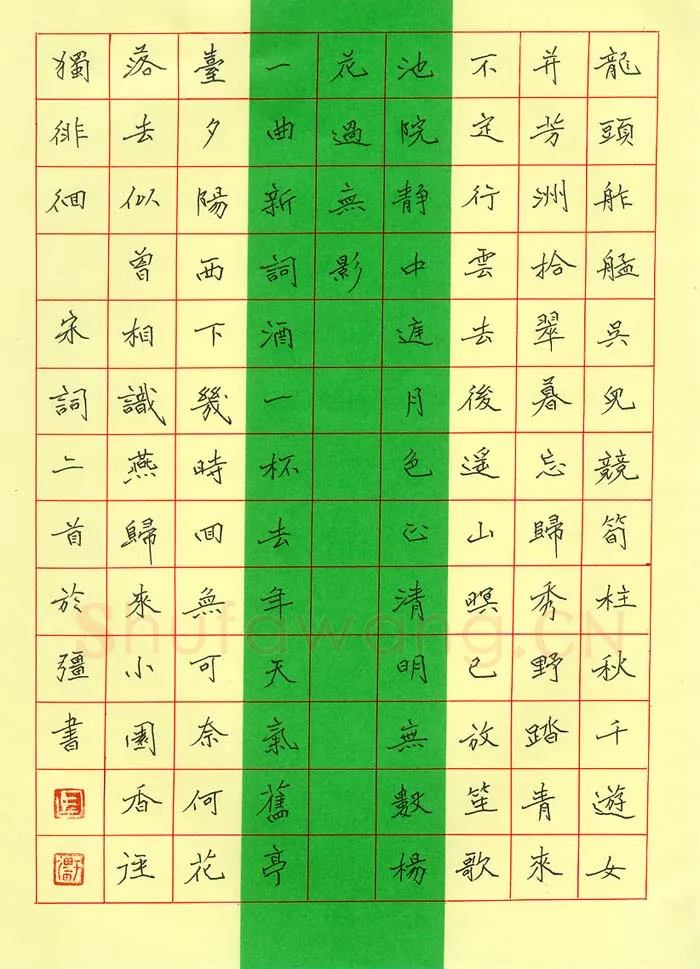 龍頭舴艋吳兒競筍柱秋千遊女
并芳洲拾翠暮忘歸秀野踏青來
不定行雲去後遥山暝已放笙歌
池院靜中庭月色正清明無數楊
花過無影
一曲新詞酒一杯去年天氣舊亭
臺夕陽西下幾時回無可奈何花
落去似曾相識燕歸來小園香徑
獨徘徊 宋詞二首於彊書
Shufawang.CN